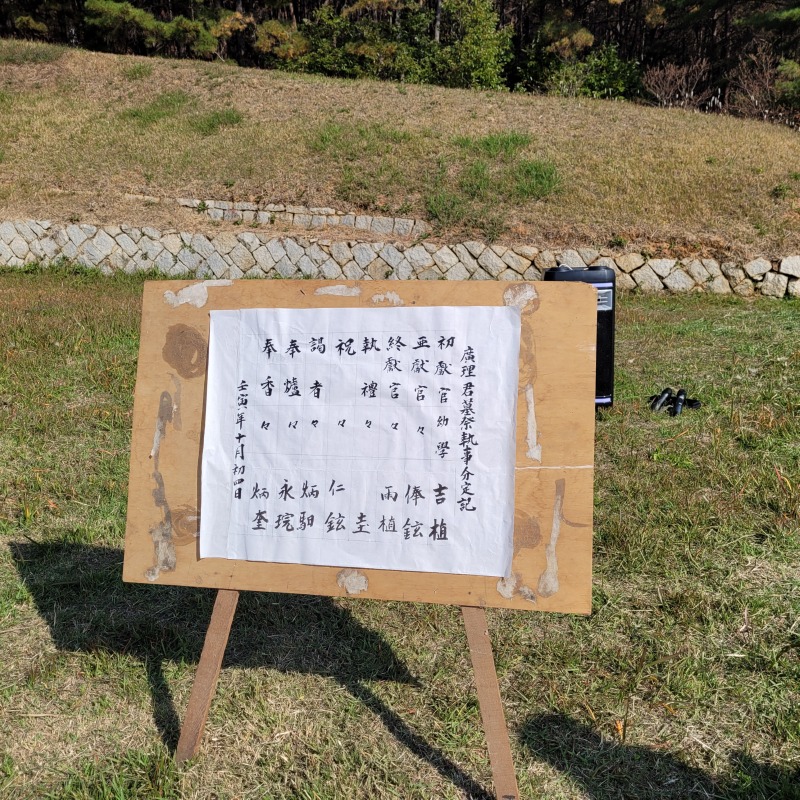 廣理君墓祭執事分定記
初獻官 幼學 吉植
亚獻官 々 俸鉉
終獻官 々 雨植
執禮 々 圭
祝 々 仁鉉
謁者 々 炳馹
奉爐 々 永琓
奉香 々 炳奎
壬寅年十月初四日